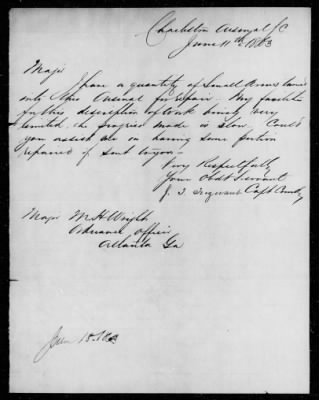 Charleston Arsenal SC
June 11th 1863
Major
I have a quantity of Small Arms turned
into this Arsenal for repair. My facilities
for this description of work being very
limited the progress made is slow. Could
you assist me in having some portion
repaired if sent to you.
Very Respectfully
Your Obdt Servant
J. T. Capt Comdg
Major M. H. Wright
Ordnance Officer
Atlanta Ga
June 15. 1863